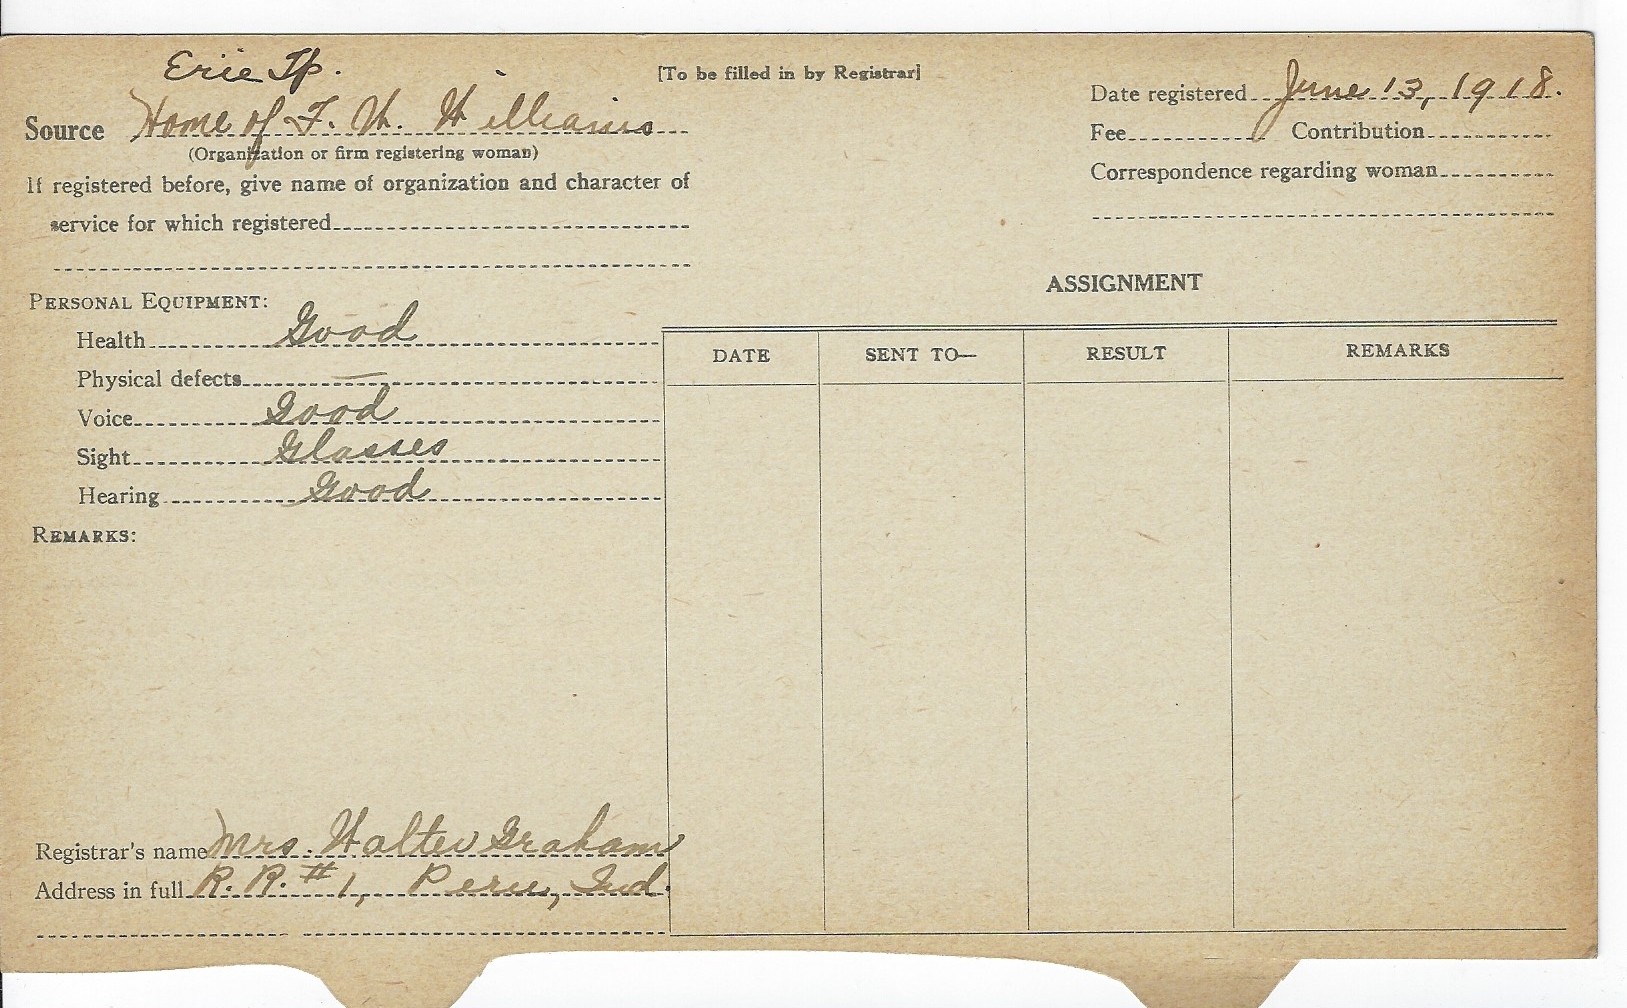 Erie Tp.
[To be filled in by Registrar]
Date registered June 13, 1918.
Source Home of F. W. Williams
Fee Contribution
(Organization or firm registering woman)
Correspondence regarding woman
If registered before, give name of organization and character of
service for which registered
ASSIGNMENT
PERSONAL EQUIPMENT:
Health Good
DATE SENT TO— RESULT REMARKS
Physical defects —
Voice Good
Sight Glasses
Hearing Good
REMARKS:
Registrar's name Mrs. Walter Graham
Address in full R. R. # 1, Peru, Ind.